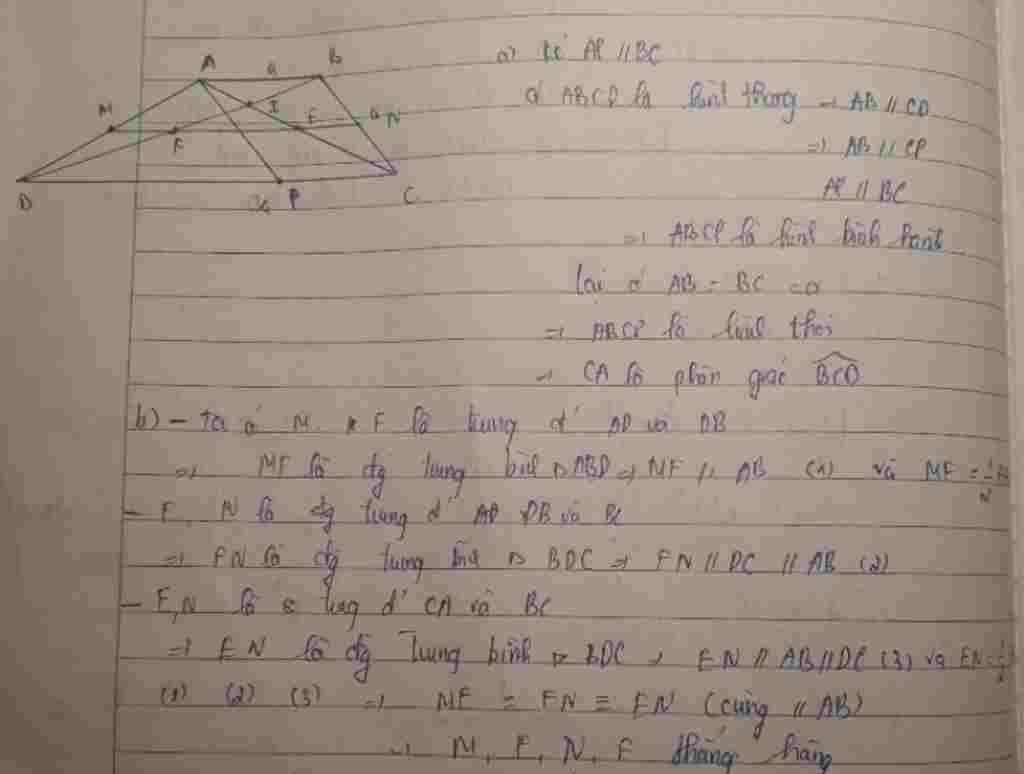 A a B
M I E a N
F
D 2a P C
a) kẻ AP // BC
có ABCD là hình thang → AB // CD
=> AB // CP
AP // BC
=> ABCP là hình bình hành
lại có AB = BC = a
=> ABCP là hình thoi
→ CA là phân giác BCD
b) - Ta có M, F là trung đ' AD và DB
=> MF là đg trung bình ▷ ABD => MF // AB (1) và MF = 1
- F, N là đg trung đ' AD DB và BC
=> FN là đg trung bình ▷ BDC => FN // DC // AB (2)
- E, N là trung đ' CA và BC
=> EN là đg trung bình ▷ BDC → EN // AB // DC (3) và EN = 1
(1) (2) (3) => MF ≡ FN ≡ EN (cùng // AB)
→ M, F, N, E thẳng hàng